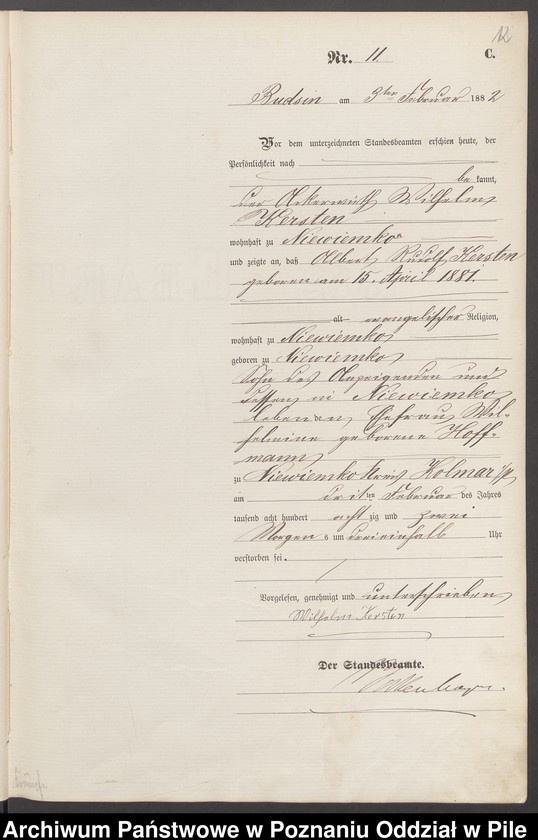 12
Nr. 11 C.
Budsin am 3ten Februar 1882
Vor dem unterzeichneten Standesbeamten erschien heute, der
Persönlichkeit nach
be kannt,
der Ackerwirth Wilhelm
Kersten
wohnhaft zu Niewiemko
und zeigte an, daß Albert Rudolf Kersten
geboren am 15. April 1881.
alt evangelischer Religion,
wohnhaft zu Niewiemko
geboren zu Niewiemko
Sohn des Anzeigenden und
dessen in Niewiemko
lebenden Ehefrau Wil-
helmine geborene Hoff-
mann
zu Niewiemko Kreis Kolmar i/p
am dritten Februar des Jahres
tausend acht hundert acht zig und zwei
Morgens um dreieinhalb Uhr
verstorben sei.
Vorgelesen, genehmigt und unterschrieben
Wilhelm Kersten
Der Standesbeamte.
Archiwum Państwowe w Poznaniu Oddział w Pile